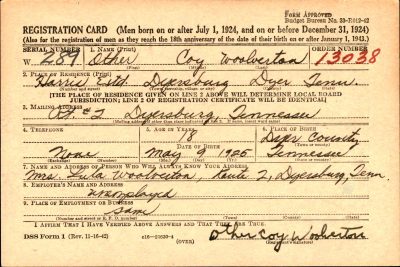 FORM APPROVED
Budget Bureau No. 33-R012-42
REGISTRATION CARD—(Men born on or after July 1, 1924, and on or before December 31, 1924)
(Also for the registration of men as they reach the 18th anniversary of the date of their birth on or after January 1, 1943.)
SERIAL NUMBER 1. NAME (Print) ORDER NUMBER
W 289 Other Coy Woolverton 13038
2. PLACE OF RESIDENCE (Print)
Dyersburg Dyer Tenn.
[THE PLACE OF RESIDENCE GIVEN ON LINE 2 ABOVE WILL DETERMINE LOCAL BOARD
JURISDICTION; LINE 2 OF REGISTRATION CERTIFICATE WILL BE IDENTICAL]
3. MAILING ADDRESS
Rt # 2 Dyersburg, Tennessee
4. TELEPHONE 5. AGE IN YEARS 6. PLACE OF BIRTH
18 Dyer County
DATE OF BIRTH
None May 9 1925 Tennessee
7. NAME AND ADDRESS OF PERSON WHO WILL ALWAYS KNOW YOUR ADDRESS
Mrs. Eula Woolverton Route 2, Dyersburg, Tenn.
8. EMPLOYER'S NAME AND ADDRESS
unemployed
9. PLACE OF EMPLOYMENT OR BUSINESS
Same
I AFFIRM THAT I HAVE VERIFIED ABOVE ANSWERS AND THAT THEY ARE TRUE.
DSS Form 1 (Rev. 11-16-42) (OVER) Other Coy Woolverton